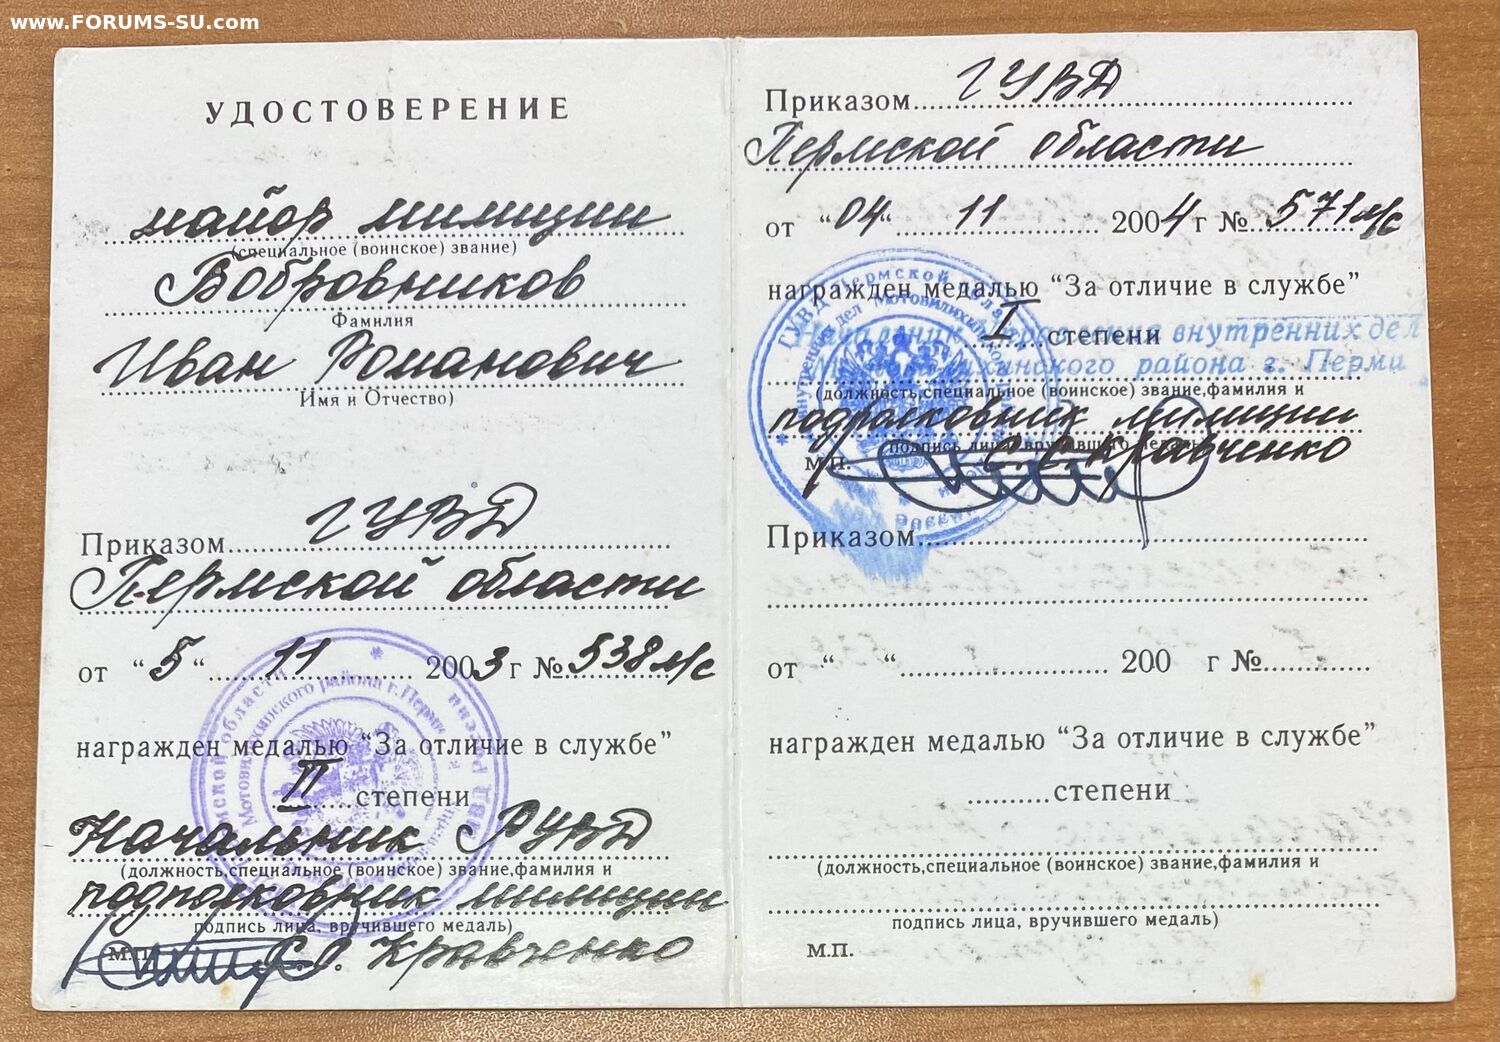 www.FORUMS-SU.com
УДОСТОВЕРЕНИЕ
майор милиции
(специальное (воинское) звание)
Бобровников
Фамилия
Иван Романович
Имя и Отчество)
Приказом ГУВД
Пермской области
от “5“ 11 2003 г № 538 л/с
награжден медалью “За отличие в службе”
II степени
Начальник РУВД
(должность,специальное (воинское) звание,фамилия и
подполковник милиции
подпись лица, вручившего медаль)
М.П. С.С. Кравченко
Приказом ГУВД
Пермской области
от “04“ 11 2004 г № 571 л/с
награжден медалью “За отличие в службе”
I степени
Начальник Управления внутренних дел
Мотовилихинского района г. Перми
(должность,специальное (воинское) звание,фамилия и
подполковник милиции
подпись лица, вручившего медаль)
М.П. С.С. Кравченко
Приказом
от “ “ 200 г №
награжден медалью “За отличие в службе”
степени
(должность,специальное (воинское) звание,фамилия и
подпись лица, вручившего медаль)
М.П.